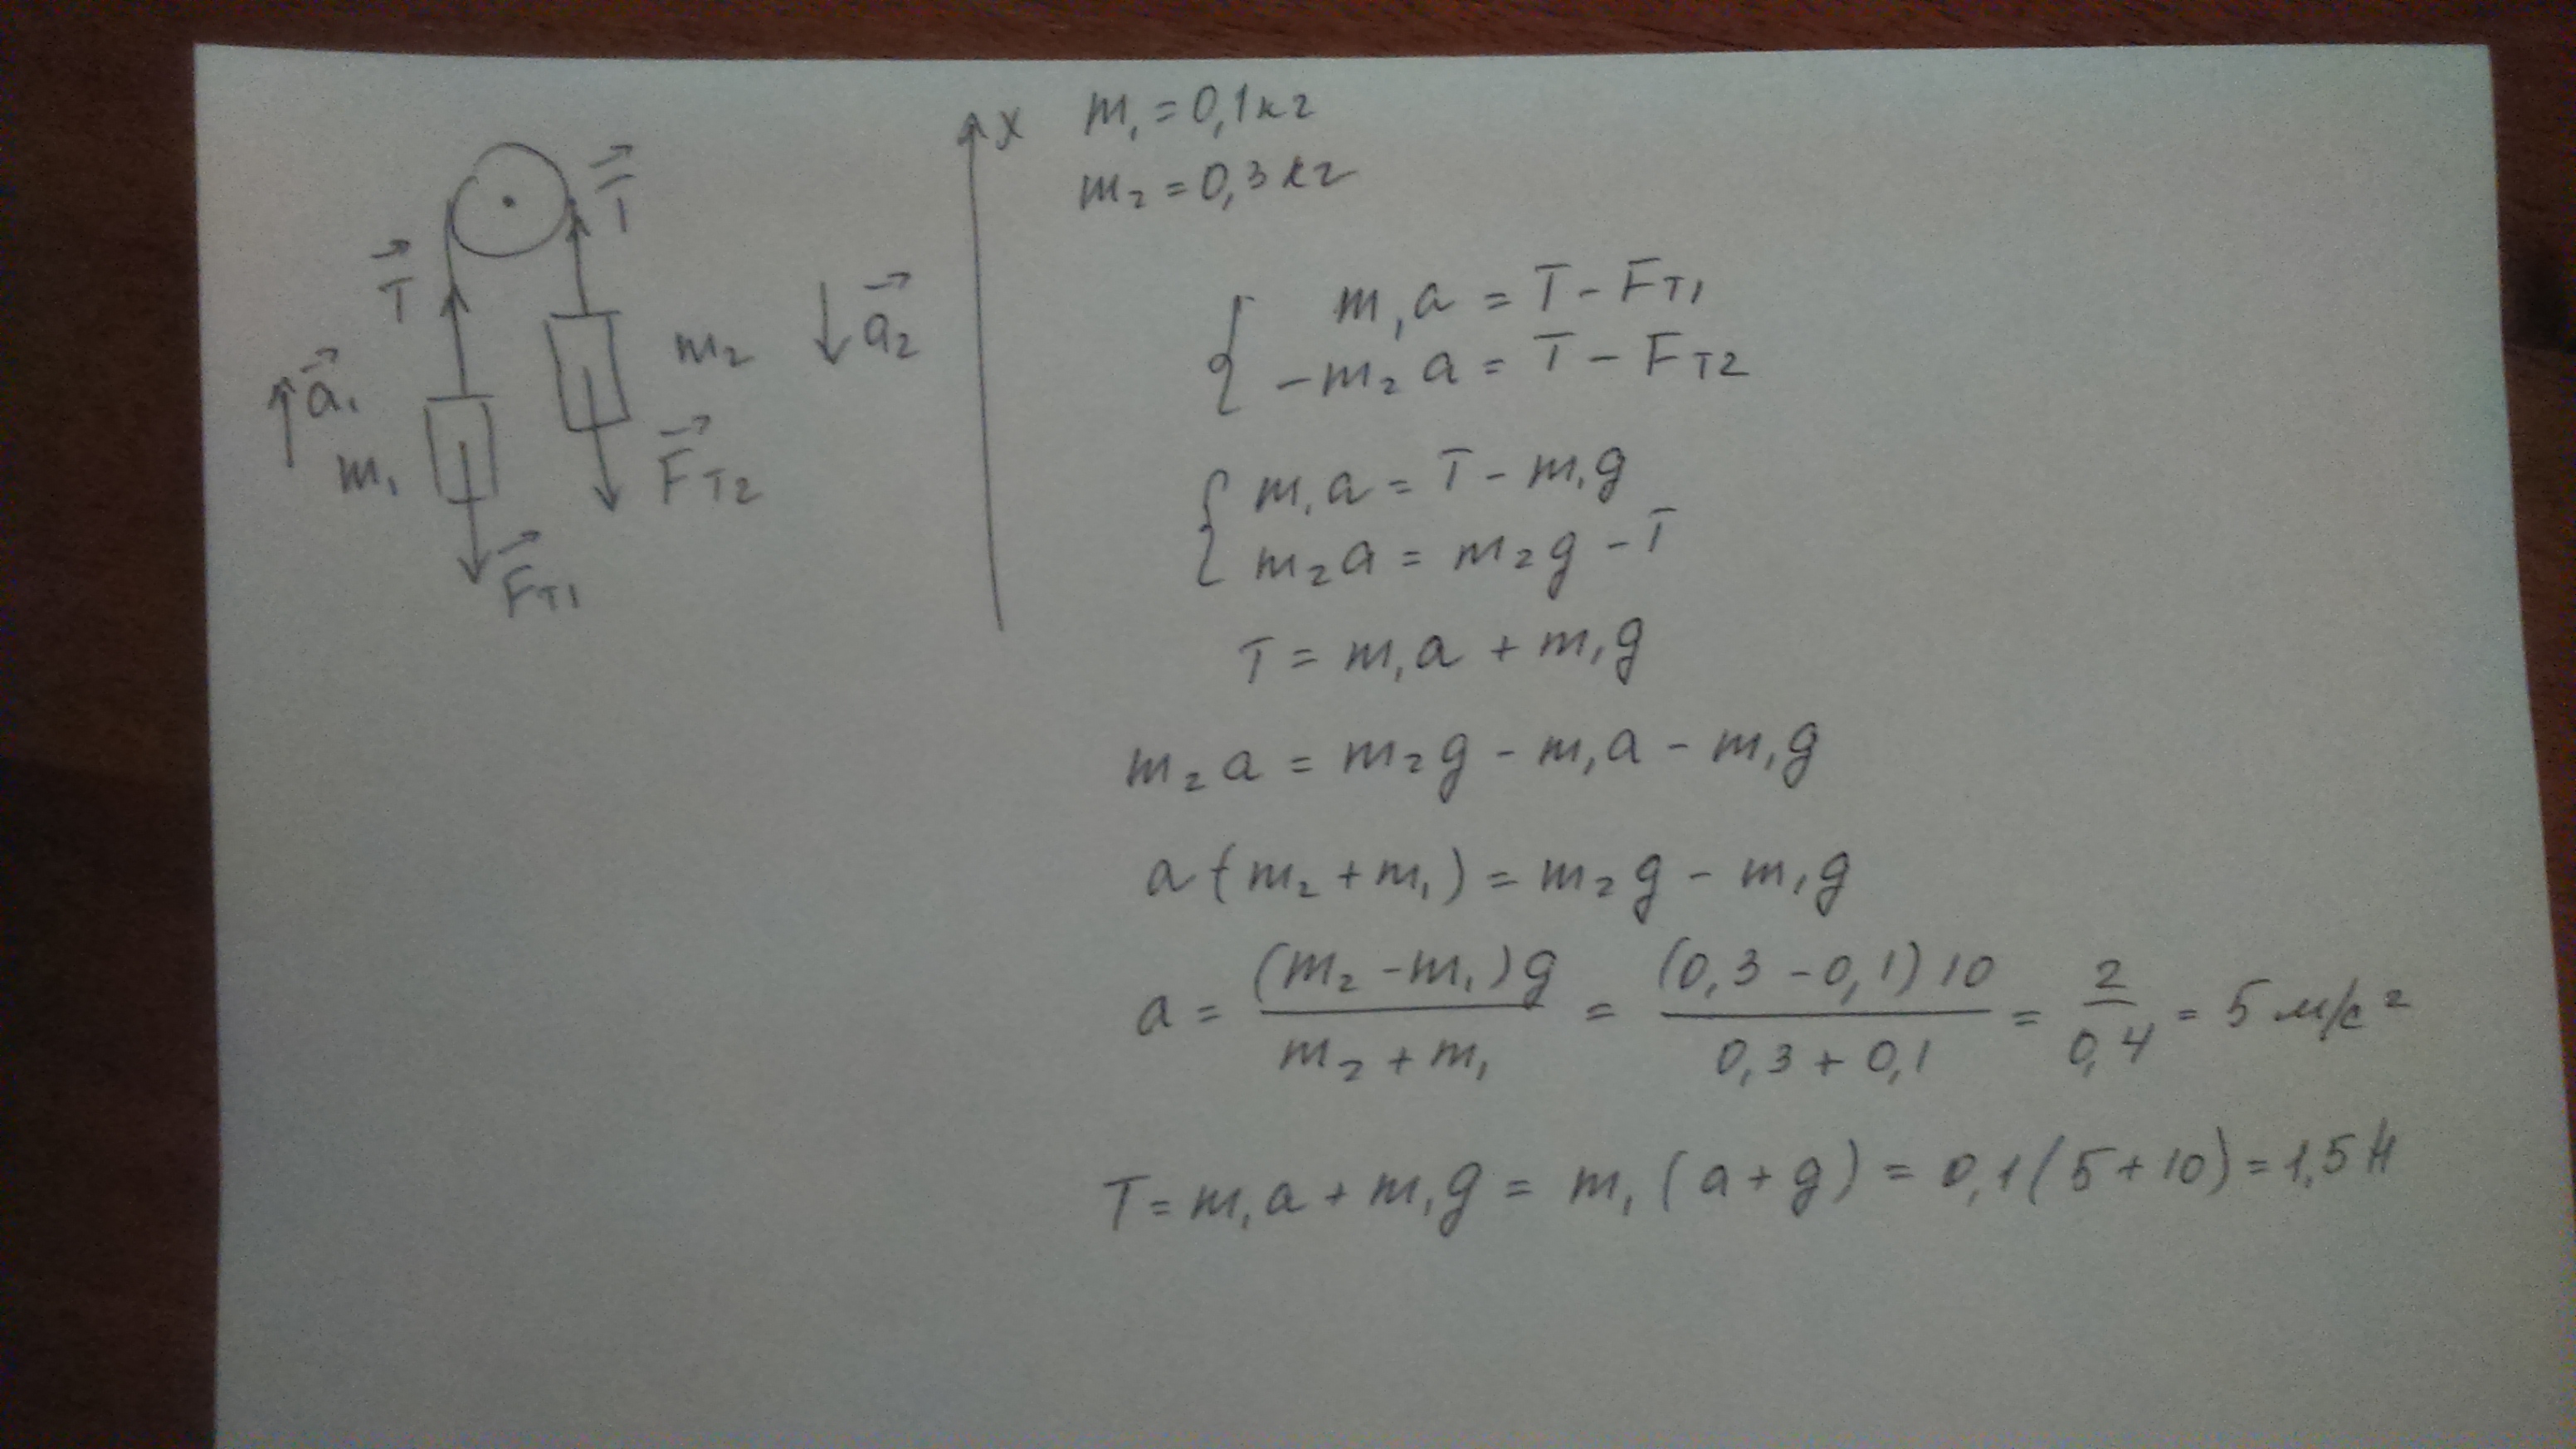 T⃗
T⃗
m₂
a⃗₂
a⃗₁
m₁
F⃗т₂
F⃗т₁
x
m₁ = 0,1 кг
m₂ = 0,3 кг
{ m₁a = T - Fт₁
-m₂a = T - Fт₂
{ m₁a = T - m₁g
m₂a = m₂g - T
T = m₁a + m₁g
m₂a = m₂g - m₁a - m₁g
a(m₂ + m₁) = m₂g - m₁g
a = (m₂ - m₁)g / (m₂ + m₁) = (0,3 - 0,1)10 / (0,3 + 0,1) = 2 / 0,4 = 5 м/с²
T = m₁a + m₁g = m₁(a + g) = 0,1(5 + 10) = 1,5 Н